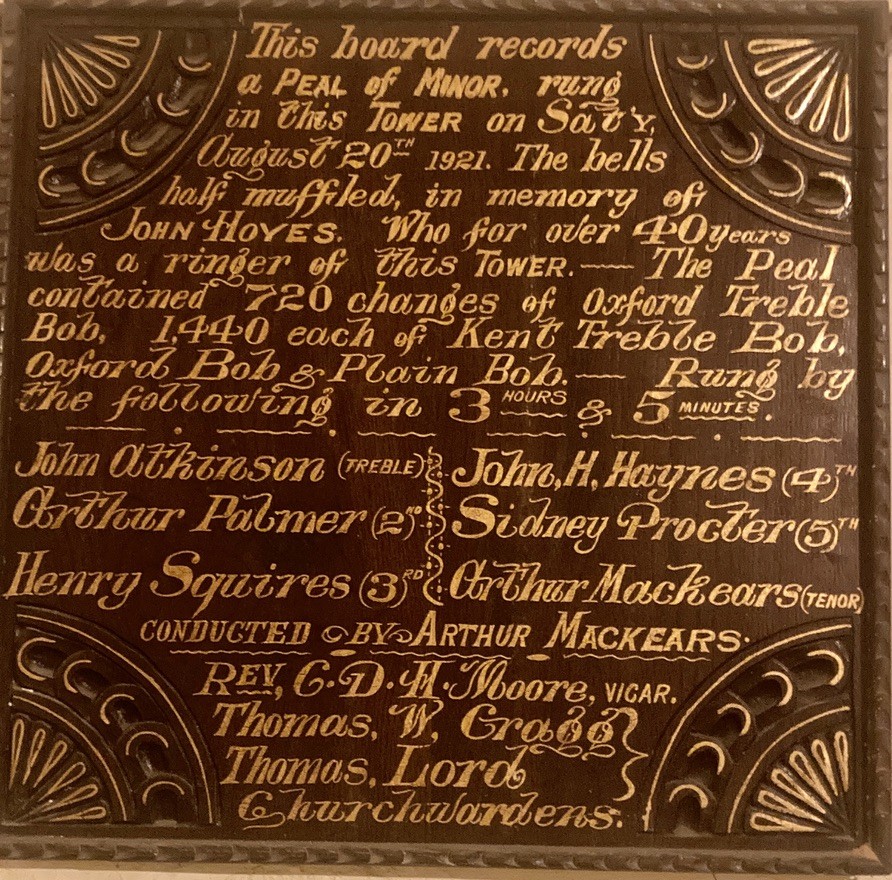 This board records
a PEAL of MINOR, rung
in this TOWER on Sat'Y,
August 20TH 1921. The bells
half muffled, in memory of
JOHN HOYES. Who for over 40 years
was a ringer of this TOWER.— The Peal
contained 720 changes of Oxford Treble
Bob, 1,440 each of Kent Treble Bob,
Oxford Bob & Plain Bob.— Rung by
the following in 3 HOURS & 5 MINUTES.
John Atkinson (TREBLE)
Arthur Palmer (2ND)
Henry Squires (3)RD
John, H, Haynes (4)TH
Sidney Procter (5)TH
Arthur Mackears (TENOR)
CONDUCTED BY ARTHUR MACKEARS.
REV, C. D. H. Moore, VICAR.
Thomas, W, Gragg }
Thomas, Lord
Churchwardens.